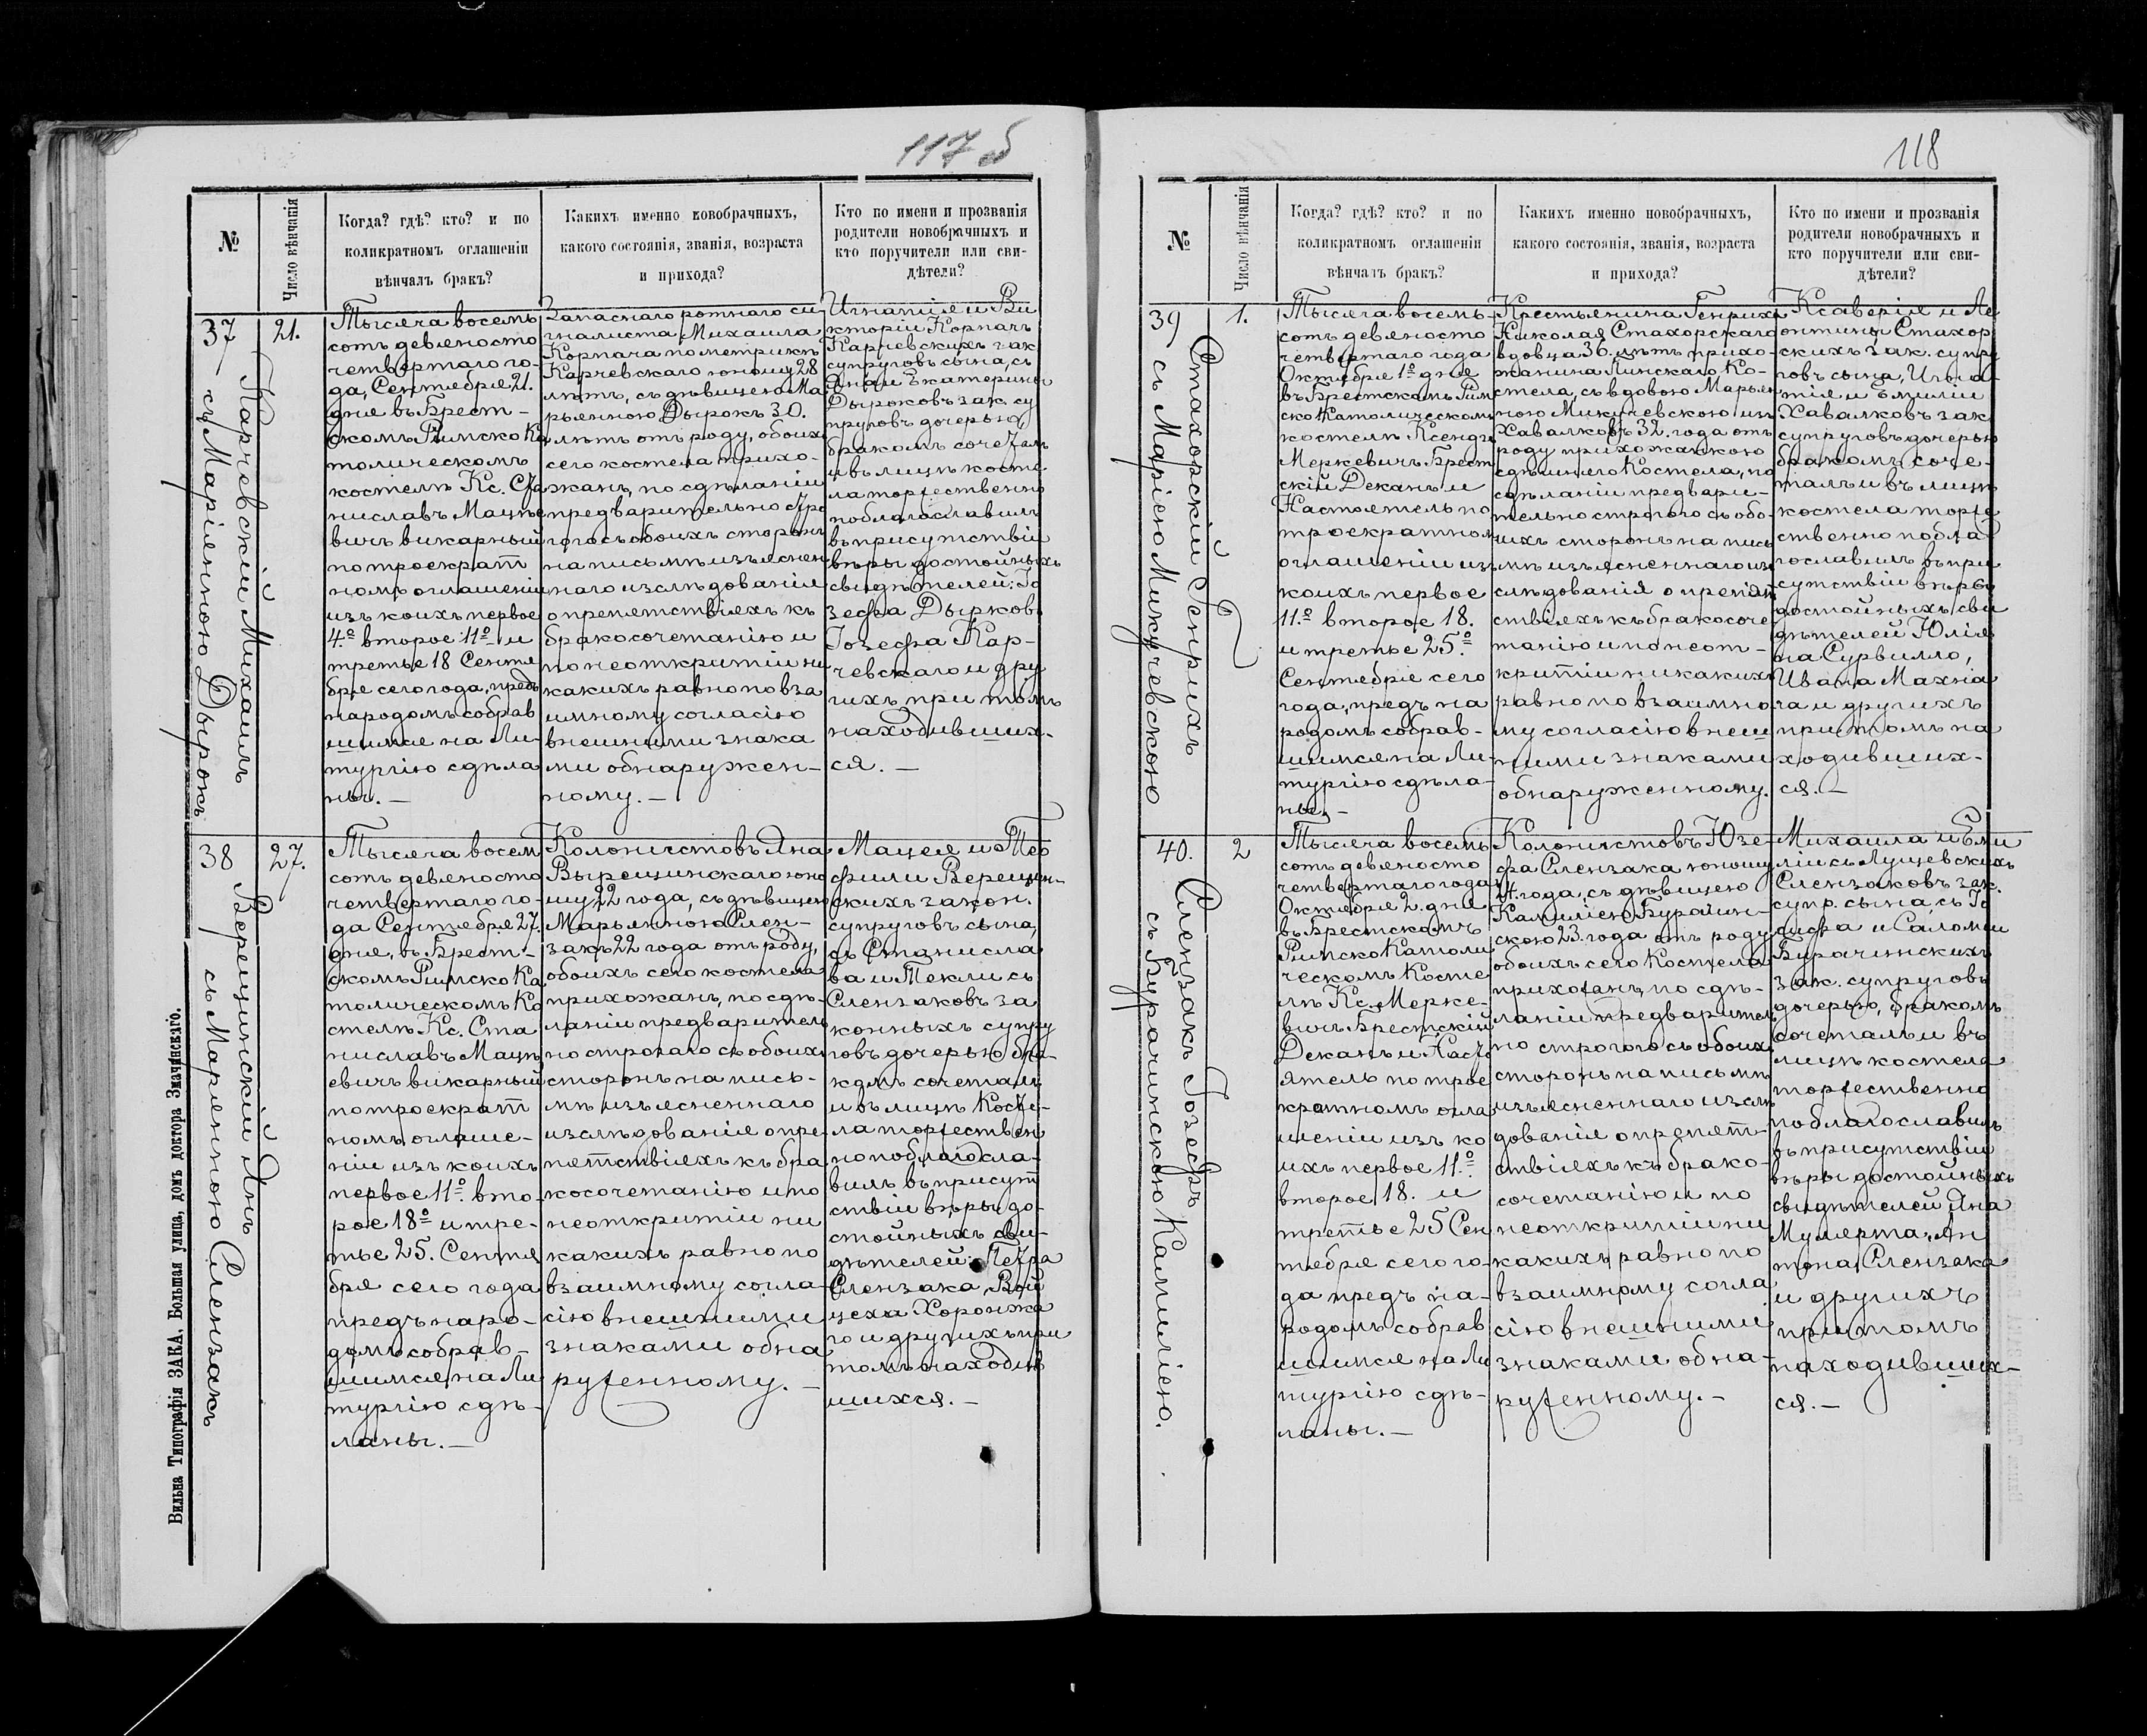 117 б
№
Число вѣнчанія
Когда? гдѣ? кто? и по
коликратномъ оглашеніи
вѣнчалъ бракъ?
Какихъ именно новобрачныхъ,
какого состоянія, званія, возраста
и прихода?
Кто по имени и прозванія
родители новобрачныхъ и
кто поручители или сви-
дѣтели?
37
Карчевскій Михаилъ
съ Маріянною Дырокъ
21.
Тысяча восемь
сотъ девяносто
четвертаго го-
да, Сентября 21.
дня въ Брест-
скомъ Римско Ка
толическомъ
костелѣ Кс. Ста
ниславъ Мацѣе
вичъ викарный
по троекрат
номъ оглашеніи
изъ коихъ первое
4.º второе 11º и
третье 18 Сентя
бря сего года, предъ
народомъ собрав
шимся на Ли-
тургію сдѣла
ны.—
Запаснаго ротнаго си
гналиста Михаила
Корпача по метрикѣ
Карчевскаго юношу 28
лѣтъ, съ дѣвицею Ма
рьянною Дырокъ 30.
лѣтъ отъ роду, обоихъ
сего костела прихо-
жанъ, по сдѣланіи
предварительно стро
гаго съ обоихъ сторонъ
на письмѣ изъяснен
наго изслѣдованія
о препятствіяхъ къ
бракосочетанію и
по неоткритіи ни
какихъ равно по вза
имному согласію
внешними знака
ми обнаружен-
ному.—
Игнатія и Ви
кторіи Корпачъ
Карчевскихъ зак
супруговъ сына, съ
Яна и Екатерины
Дыроковъ зак. су
пруговъ дочерью,
бракомъ сочеталъ
и въ лицѣ косте
ла торжественно
поблагославилъ
въ присутствіи
вѣры достойныхъ
свидѣтелей: Іо
зефа Дырковъ
Іозефа Кар-
чевскаго и дру
гихъ при томъ
находивших-
ся.—
38
Верещинскій Янъ
съ Марянною Слензакъ
27.
Тысяча восем
сотъ девяносто
четвертаго го-
да Сентября 27.
дня, въ Брест-
скомъ Римско Ка
толическомъ Ко
стелѣ Кс. Ста
ниславъ Мацѣ
евичъ викарный
по троекрат
номъ оглаше-
ніи изъ коихъ
первое 11º вто-
рое 18º и тре-
тье 25. Сентя
бря сего года
предъ наро-
домъ собрав-
шимся на Ли
тургію сдѣ-
ланы.—
Колонистовъ Яна
Вырещинскаго юно
шу 22 года, съ дѣвицею
Марьянною Слен-
закъ 22 года отъ роду,
обоихъ сего костела
прихожанъ, по сдѣ-
ланіи предварител
но строгаго съ обоихъ
сторонъ на пись-
мѣ изъясненнаго
изслѣдованія о пре-
пятствіяхъ къ бра
косочетанію и по
неоткритіи ни
какихъ равно по
взаимному согла-
сію внешними
знаками обна
руженному.—
Мацея и Тео
фили Верещин-
скихъ закон.
супруговъ сына,
съ Станисла
ва и Текли съ
Слензаковъ за
конныхъ супру
говъ дочерью бра-
комъ сочеталъ
и въ лицѣ Косте-
ла торжествен
но поблагосла-
вилъ въ присут
ствіи вѣры до-
стойныхъ сви-
дѣтелей: Петра
Слензака, Вой
цеха Хоронжа
го и другихъ при
томъ находив
шихся.—
Вильна Типографія ЗАКА. Большая улица, домъ доктора Значинскаго.
118
№
Число вѣнчанія
Когда? гдѣ? кто? и по
коликратномъ оглашеніи
вѣнчалъ бракъ?
Какихъ именно новобрачныхъ,
какого состоянія, званія, возраста
и прихода?
Кто по имени и прозванія
родители новобрачныхъ и
кто поручители или сви-
дѣтели?
39
Стахорскій Генрихъ
съ Маріею Микучевскою
1.
Тысяча восемь
сотъ девяносто
четвертаго года
Октября 1º дня
въ Брестскомъ Рим
ско Католическомъ
костелѣ Ксендзъ
Меркевичъ Брест
скій Деканъ и
Настоятель по
троекратном
оглашеніи изъ
коихъ первое
11.º второе 18.
и третье 25.º
Сентября сего
года, предъ на
родомъ собрав-
шимся на Ли-
тургію сдѣла-
ны.—
Крестьянина Генриха
Николая Стахорскаго
вдовца 30. лѣтъ прихо-
жанина Пинскаго Ко-
стела, съ вдовою Марьян
ною Микучевскою изъ
Хавалковъ 32. года отъ
роду прихожанкою
сдѣшняго Костела, по
сдѣланіи предвари-
тельно строгого съ обо-
ихъ сторонъ на пись
мѣ изъясненнаго из
слѣдованія о препят
ствіяхъ къ бракосоче
танію и по неот-
критіи никакихъ
равно по взаимно
му согласію внеш
ними знаками
обнаруженному.
Ксаверія и Ле
онтины Стахор
скихъ зак. супру
говъ сына, Игна-
тія и Емиліи
Хавалковъ зак
супруговъ дочерью
бракомъ соче-
талъ и въ лицѣ
костела торже
ственно побла
гославилъ въ при
сутствіи вѣры
достойныхъ сви
дѣтелей Юлія
на Сурвилло,
Ивана Махна
ча и другихъ
при томъ на
ходивших-
ся.—
40.
Слензакъ Іозефъ
съ Бурачинскою Камиліею.
2
Тысяча восемь
сотъ девяносто
четвертаго года
Октября 2. дня
въ Брестскомъ
Римско Католи
ческомъ Косте
лѣ Кс. Мерке-
вичъ Брестскій
Деканъ и Насто
ятель по трое
кратномъ огла
шеніи изъ ко
ихъ первое 11.º
второе 18. и
третье 25 Сен
тября сего го-
да предъ на-
родомъ собрав
шимся на Ли
тургію сдѣ-
ланы.—
Колонистовъ Юзе-
фа Слензака юношу
24. года, съ дѣвицею
Камиліею Бурачин-
скою 23. года отъ роду
обоихъ сего Костела
прихожанъ, по сдѣ-
ланіи предварител
но строгого съ обоихъ
сторонъ на письмѣ
изъясненнаго изслѣ
дованія о препят-
ствіяхъ къ брако-
сочетанію и по
неоткритіи ни
какихъ равно по
взаимному согла
сію внешними
знаками обна-
руженному.—
Михаила и Еми
ліи съ Лущевскихъ
Слензаковъ зак.
супр. сына, съ Іо
зефа и Саломеи
Бурачинскихъ
зак. супруговъ
дочерью, бракомъ
сочеталъ и въ
лицѣ костела
торжественно
поблагославилъ
въ присутствіи
вѣры достойныхъ
свидѣтелей Яна
Мулярта, Ан
тона Слензака
и другихъ
при томъ
находивших-
ся.—